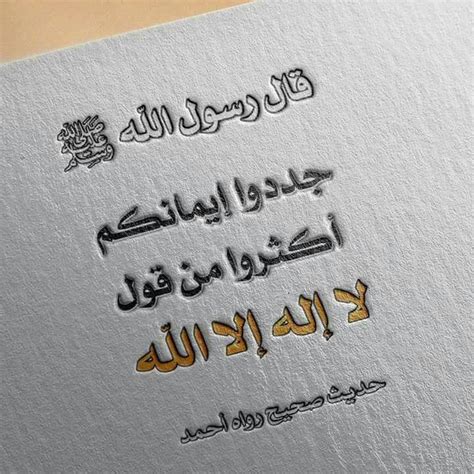 قال رسول الله ﷺ
جددوا إيمانكم
أكثروا من قول
لا إله إلا الله
حديث صحيح رواه أحمد